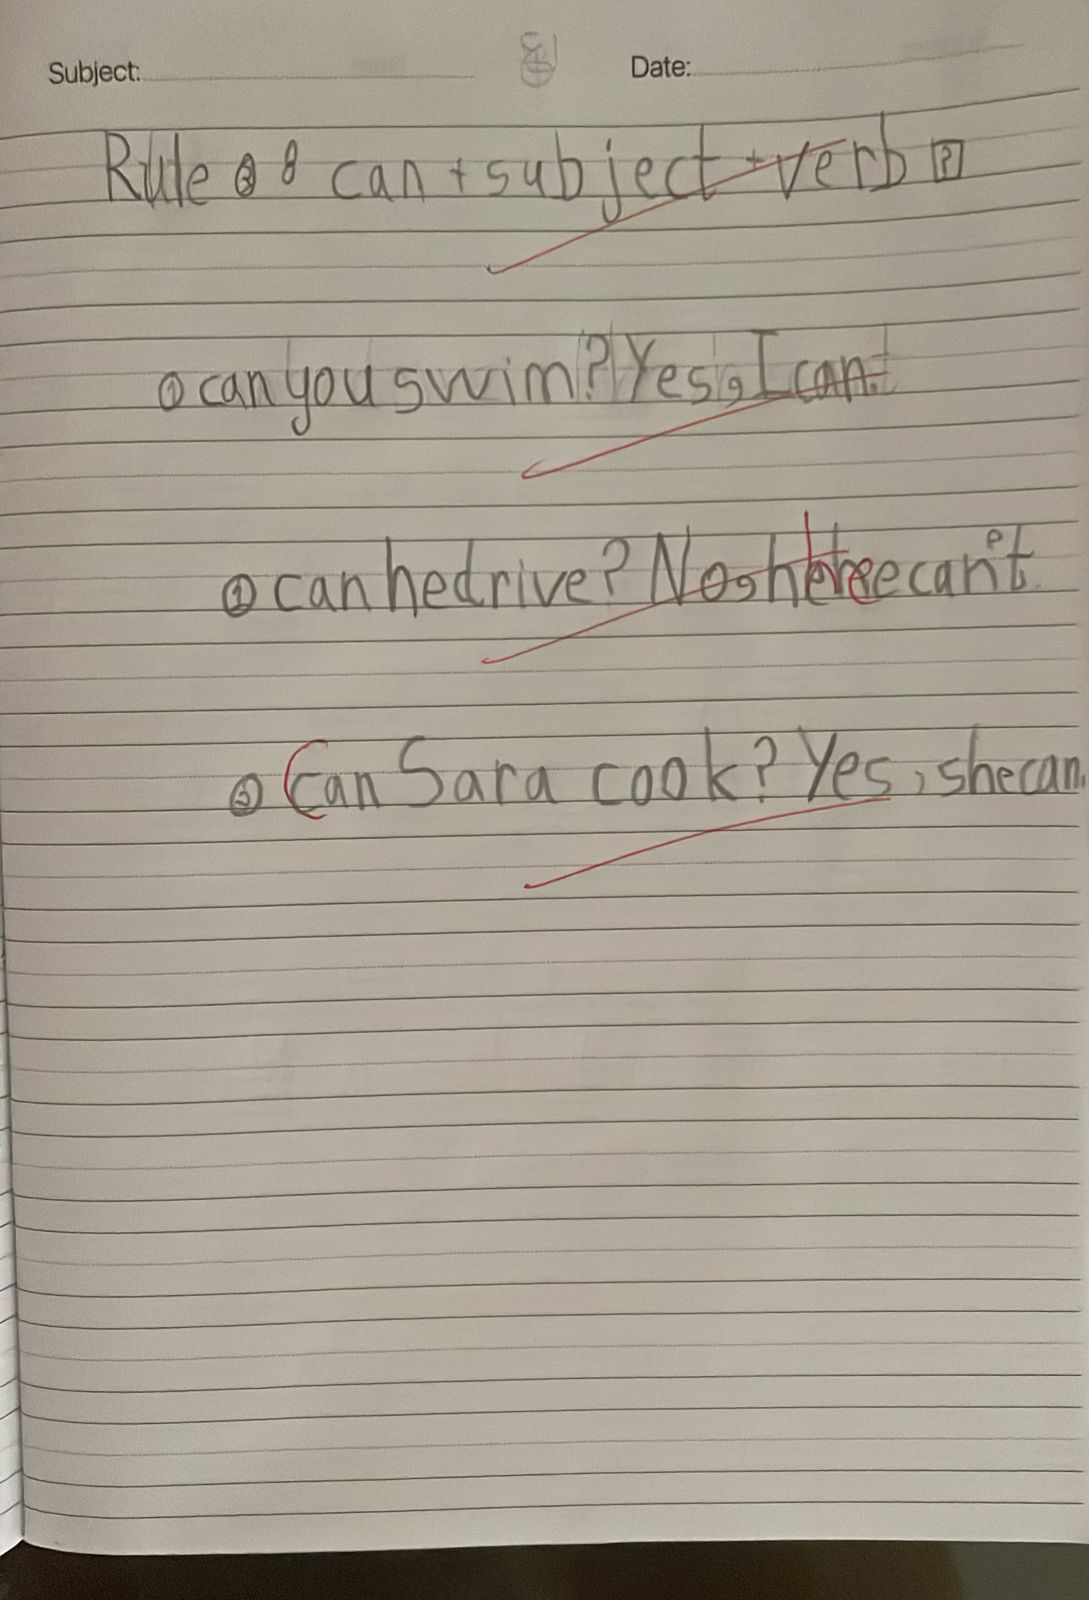 Subject: Date:
Rule ③ : can + subject + verb ?
① can you swim? Yes, I can.
② can he drive? No, he can't
③ Can Sara cook? Yes, she can.